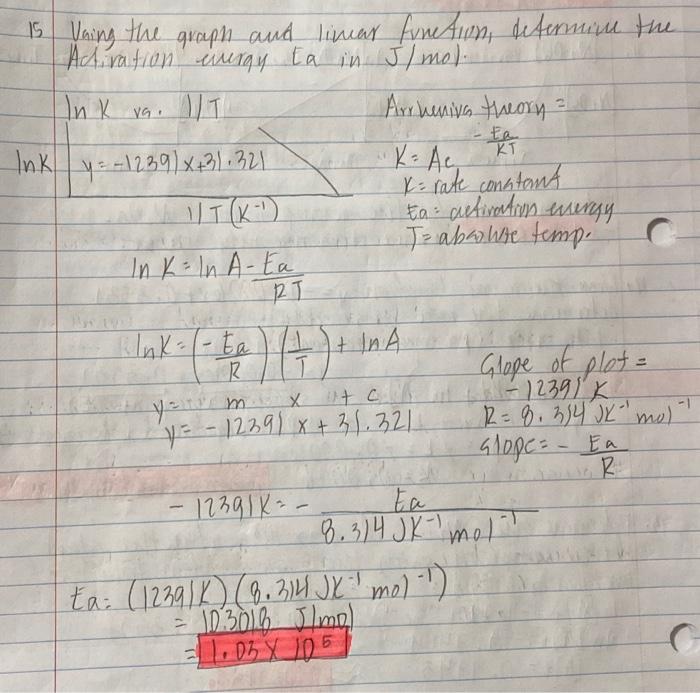 15 Using the graph and linear function, determine the
Activation energy Ea in J/mol.
ln K vs. 1/T
Arrhenius theory =
ln K
y = -12391x+31.321
K = Ae^(-Ea/KT)
K = rate constant
1/T (K⁻¹)
Ea = activation energy
T = absolute temp.
ln K = ln A - Ea/RT
ln K = (-Ea/R)(1/T) + ln A
y = m x + c
y = -12391 x + 31.321
Slope of plot =
-12391 K
R = 8.314 JK⁻¹ mol⁻¹
slope = - Ea/R
-12391K = - Ea/8.314 JK⁻¹ mol⁻¹
Ea = (12391K)(8.314 JK⁻¹ mol⁻¹)
= 103018 J/mol
= 1.03 X 10⁵